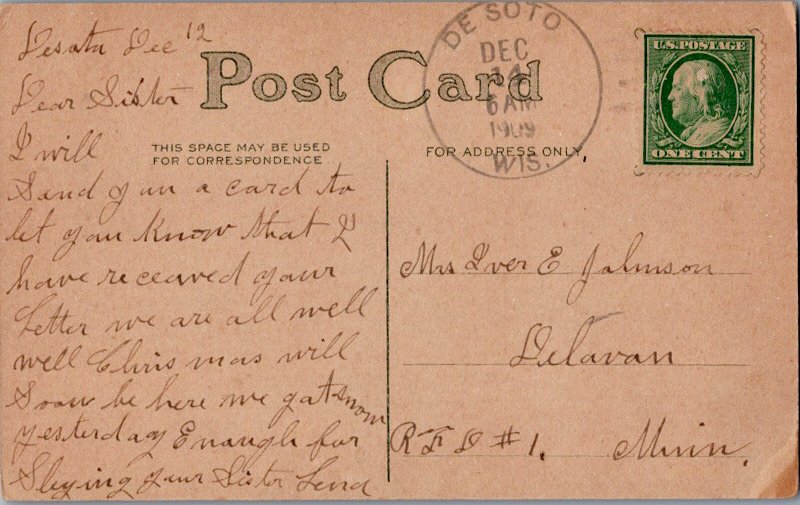 Desota Dec 12
Dear Sister
I will
Send you a card to
let you Know that I
have receaved your
Letter we are all well
well Chris mas will
Soon be here we got snow
yesterday Enough for
Sleying your Sister Lena
Post Card
THIS SPACE MAY BE USED
FOR CORRESPONDENCE
FOR ADDRESS ONLY.
DE SOTO
DEC
14
6 AM
1909
WIS.
U.S. POSTAGE
ONE CENT
Mrs Iver E Johnson
Delavan
R F D #1. Minn.